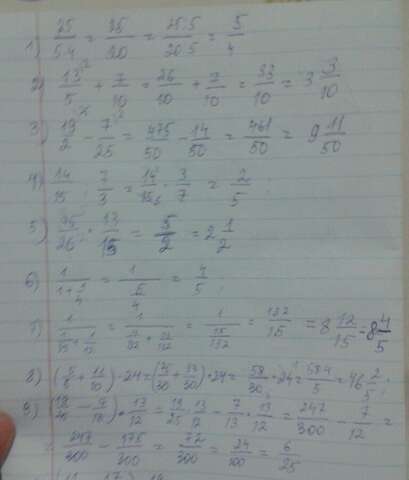 1) 25/5·4 = 25/20 = 25:5/20:5 = 5/4
2) 13/5 + 7/10 = 26/10 + 7/10 = 33/10 = 3 3/10
3) 19/2 - 7/25 = 475/50 - 14/50 = 461/50 = 9 11/50
4) 14/15 : 7/3 = 14/15 · 3/7 = 2/5;
5) 75/26 · 13/15 = 5/2 = 2 1/2
6) 1/1+1/4 = 1/5/4 = 4/5;
7) = = 1/15/132 = 132/15 = 8 12/15 = 8 4/5
8) · 24 = · 24 = 58/30 · 24 = = 46 2/5;
9) · 13/12 = 19/25 · 13/12 - 7/13 · 13/12 = 247/300 - 7/12 =
= 247/300 - 175/300 = 72/300 = 24/100 = 6/25